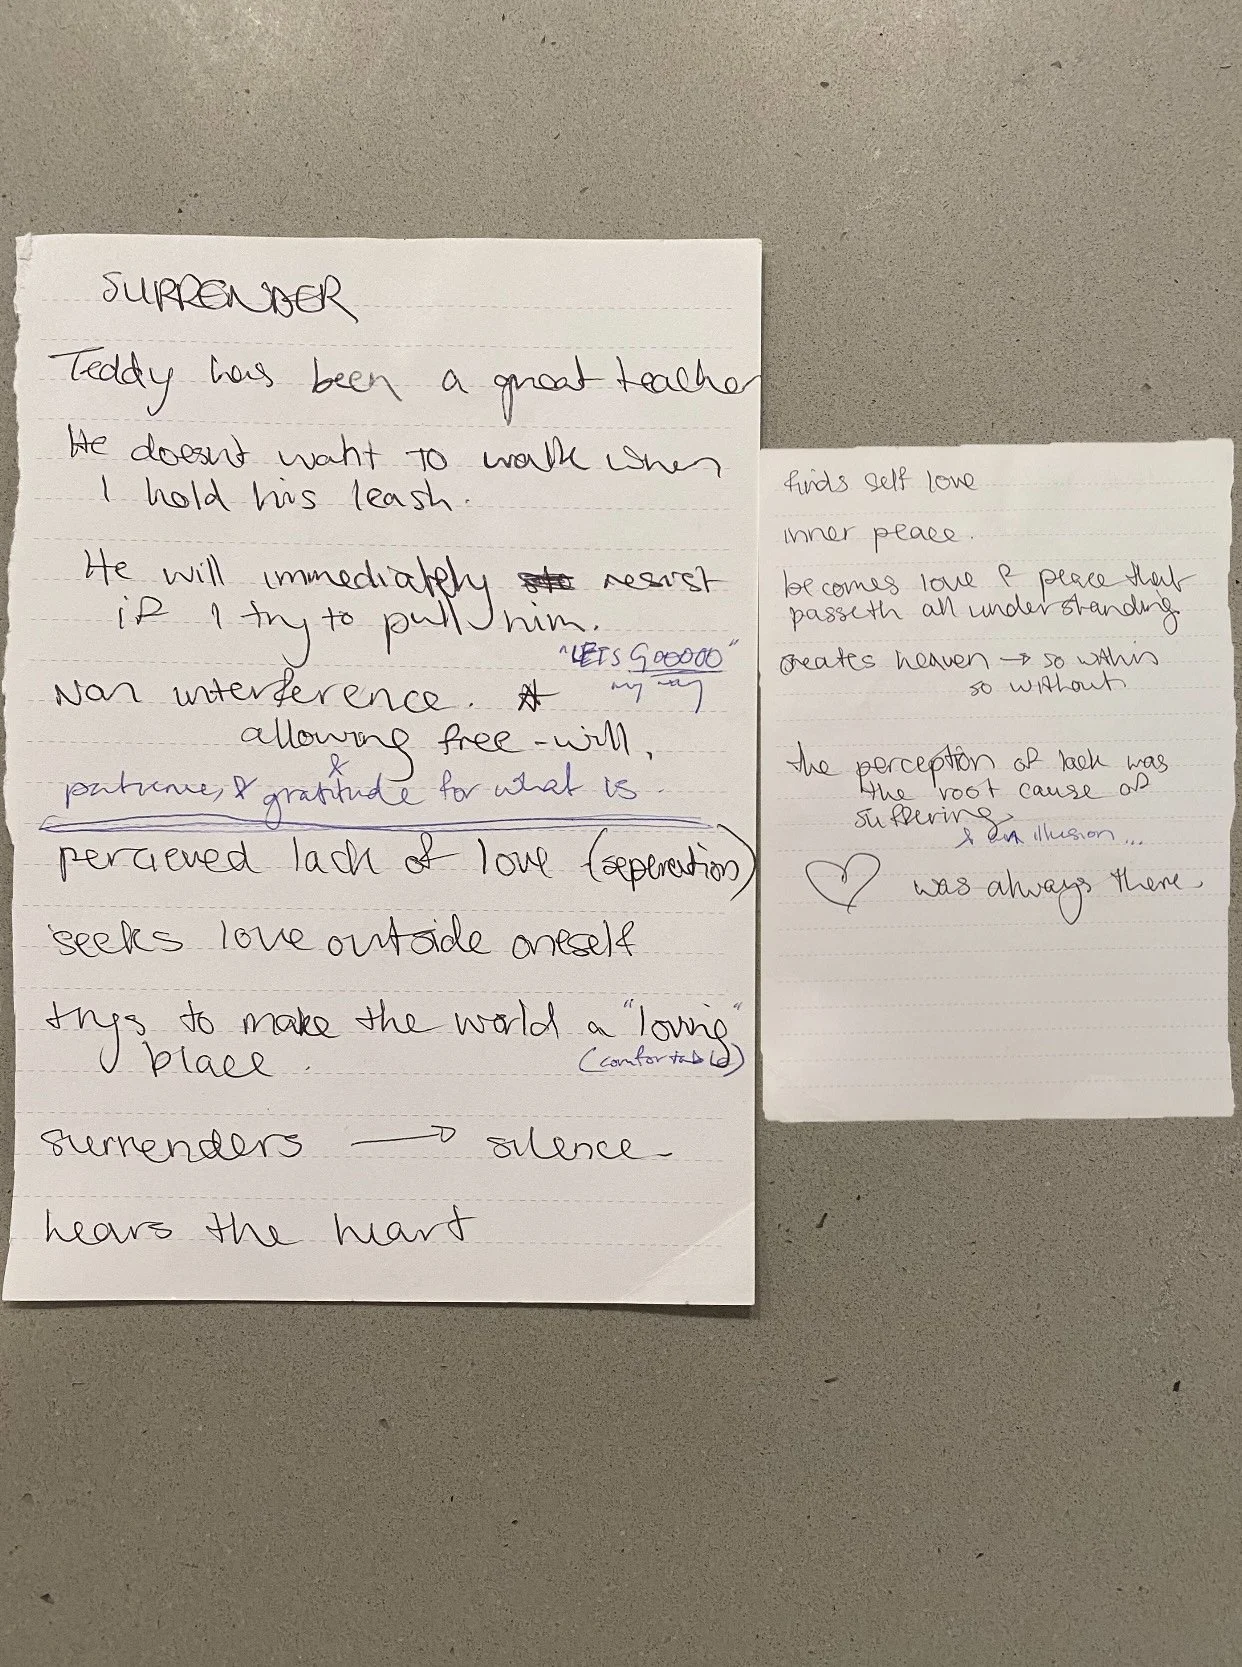 SURRENDER
Teddy has been a great teacher
He doesnt waht to walk when
I hold his leash.
He will immediately resist
if I try to pull him.
"LETS GOOOOO"
my way
Non interference.
allowing free-will,
&
patience, & gratitude for what is.
percieved lack of love (seperation)
seeks love outside oneself
trys to make the world a "loving"
place.
(comfortable)
surrenders → silence
hears the heart
finds self love
inner peace.
becomes love & peace that
passeth all understanding
creates heaven → so within
so without
the perception of lack was
the root cause of
suffering
& an illusion...
♡ was always there.